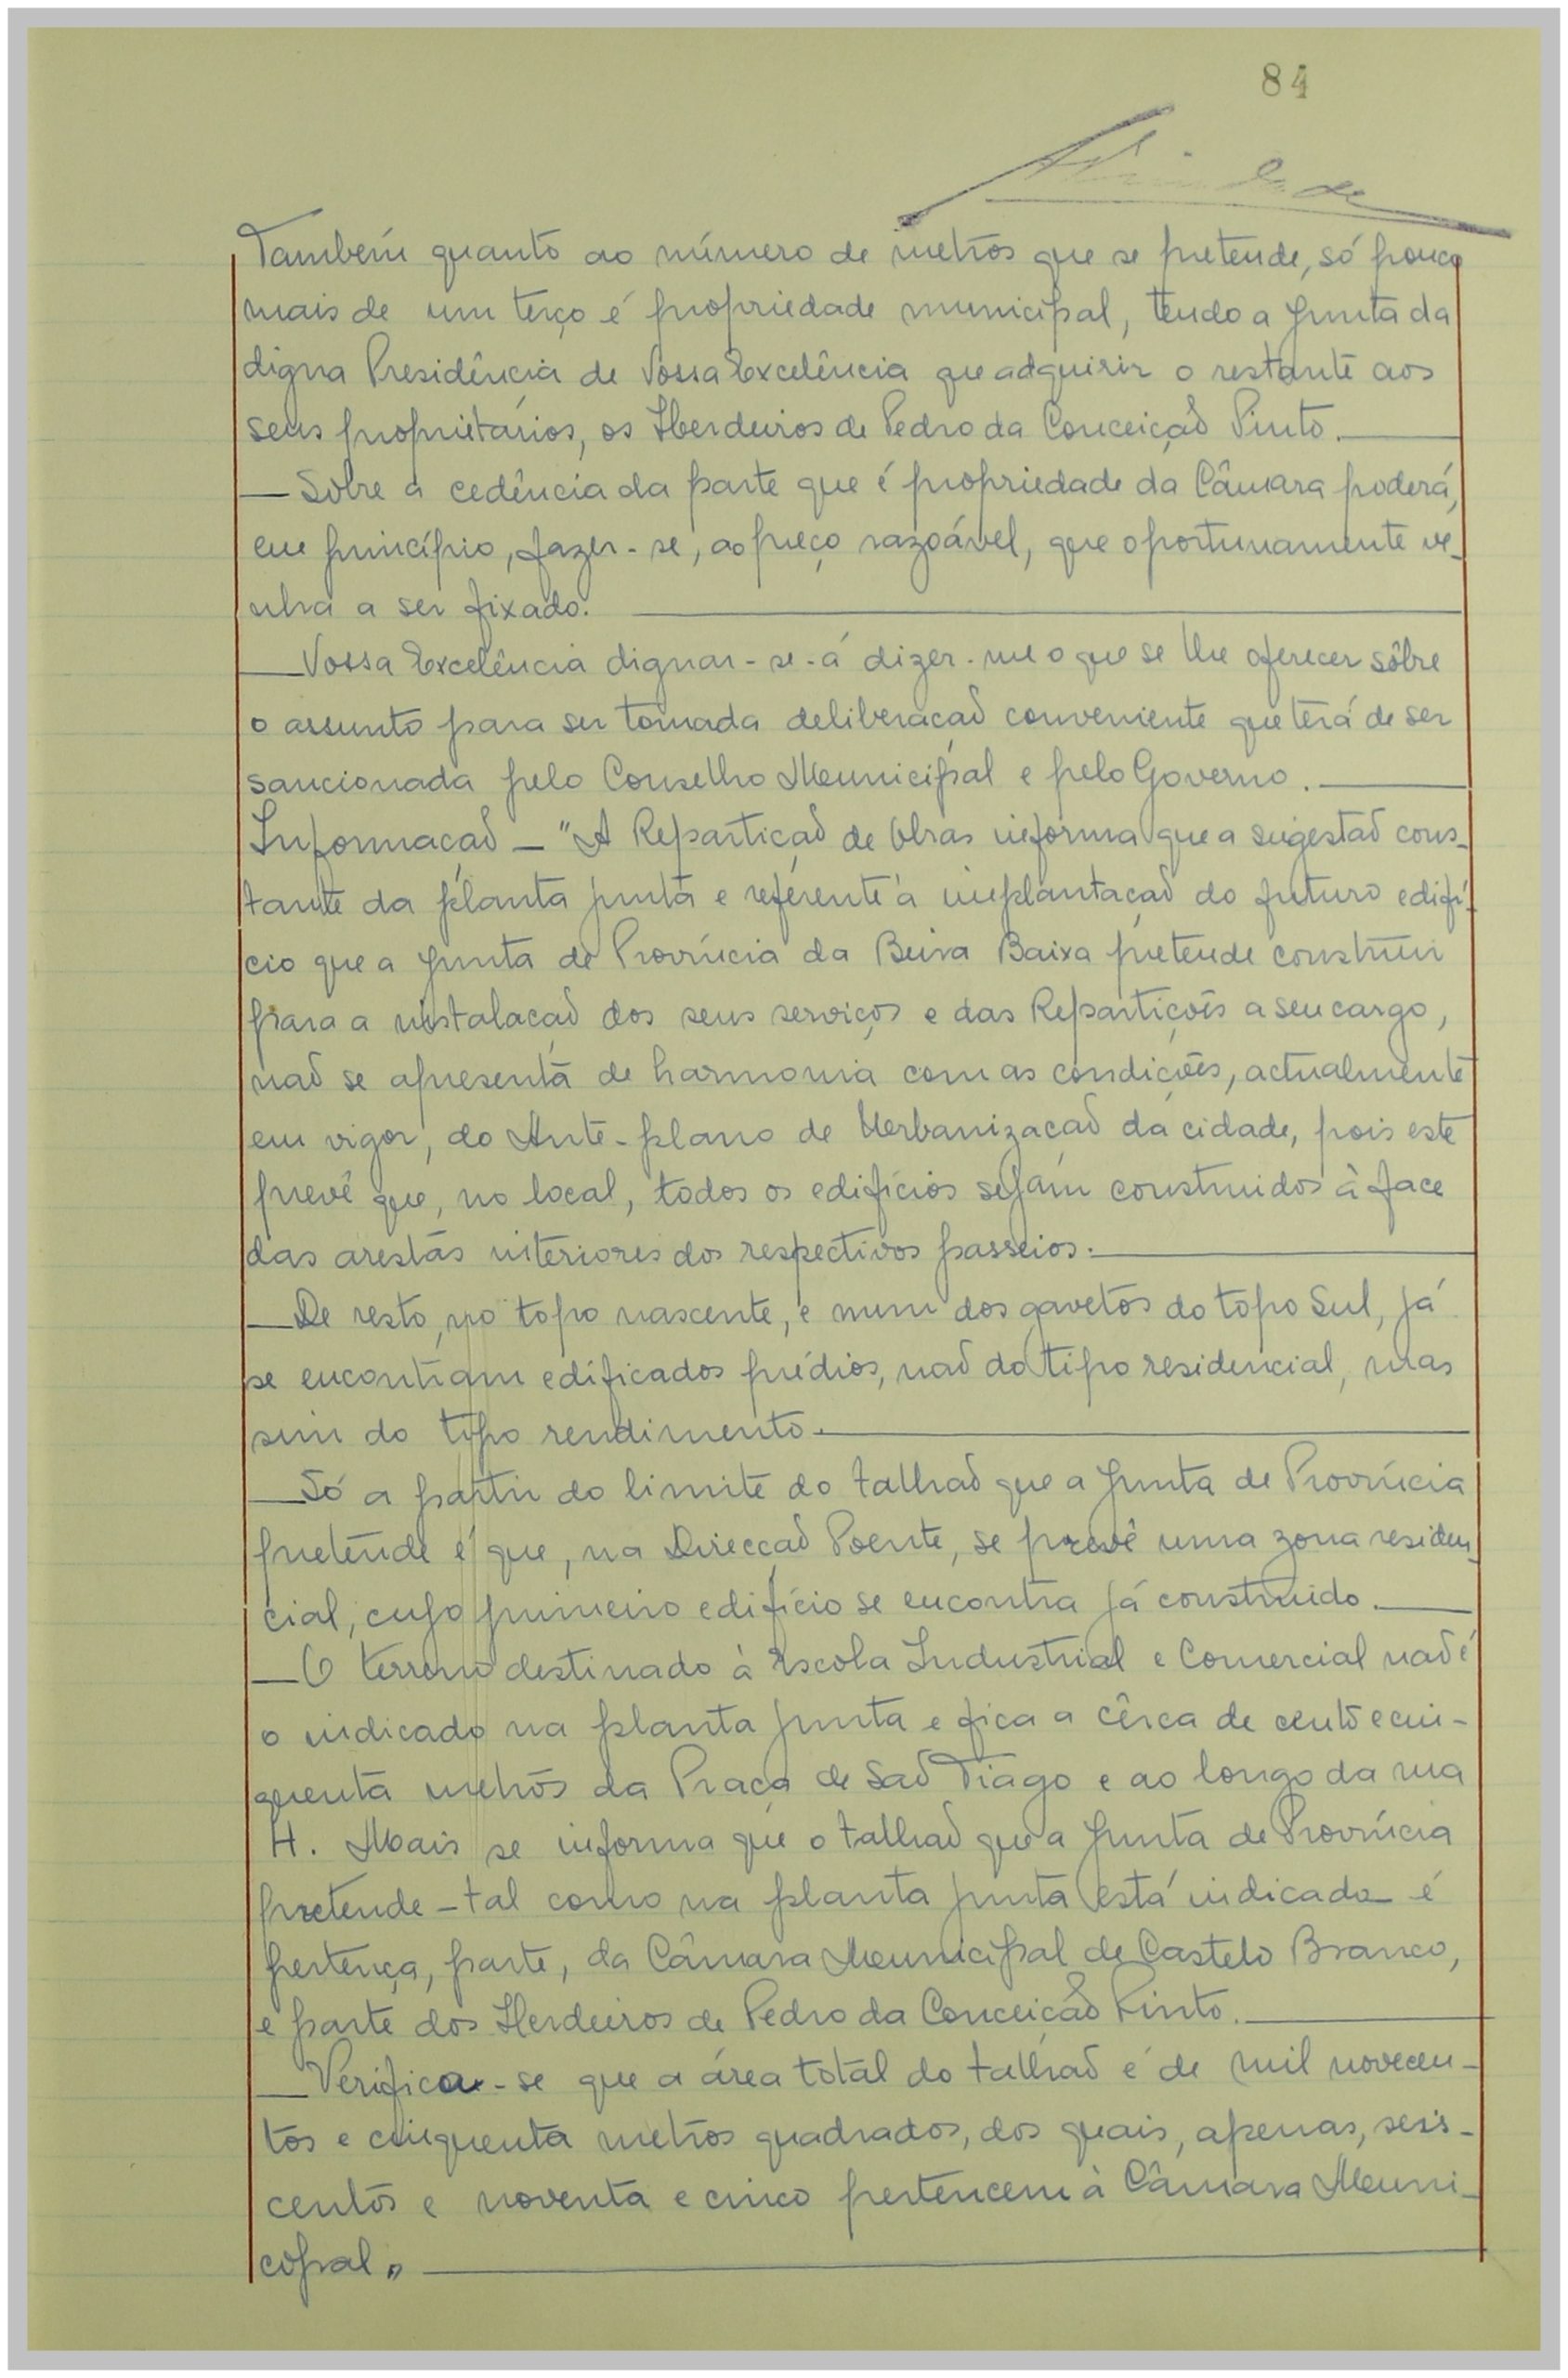 84
Também quanto ao número de metros que se pretende, só pouco
mais de um terço é propriedade municipal, tendo a Junta da
digna Presidência de Vossa Excelência que adquirir o restante aos
seus proprietários, os Herdeiros de Pedro da Conceição Pinto.
— Sôbre a cedência da parte que é propriedade da Câmara poderá,
em princípio, fazer-se, ao preço razoável, que oportunamente ve-
nha a ser fixado.
— Vossa Excelência dignar-se-á dizer-me o que se lhe oferecer sôbre
o assunto para ser tomada deliberação conveniente que terá de ser
sancionada pelo Conselho Municipal e pelo Governo.
Informação — "A Repartição de Obras informa que a sugestão cons-
tante da planta junta e referente à implantação do futuro edifí-
cio que a Junta de Província da Beira Baixa pretende construir
para a instalação dos seus serviços e das Repartições a seu cargo,
não se apresenta de harmonia com as condições, actualmente
em vigor, do Ante-plano de Urbanização da cidade, pois este
prevê que, no local, todos os edifícios sejam construidos à face
das arestas interiores dos respectivos passeios.
— De resto, no topo nascente, e num dos gavetos do topo Sul, já
se encontram edificados prédios, não do tipo residencial, mas
sim do tipo rendimento.
— Só a partir do limite do talhão que a Junta de Província
pretende é que, na Direcção Poente, se prevê uma zona residen-
cial, cujo primeiro edifício se encontra já construido.
— O terreno destinado à Escola Industrial e Comercial não é
o indicado na planta junta e fica a cêrca de cento e cin-
quenta metros da Praça de São Tiago e ao longo da rua
H. Mais se informa que o talhão que a Junta de Província
pretende - tal como na planta junta está indicado - é
pertença, parte, da Câmara Municipal de Castelo Branco,
e parte dos Herdeiros de Pedro da Conceição Pinto.
— Verifica-se que a área total do talhão é de mil novecen-
tos e cinquenta metros quadrados, dos quais, apenas, seis-
centos e noventa e cinco pertencem à Câmara Muni-
cipal„